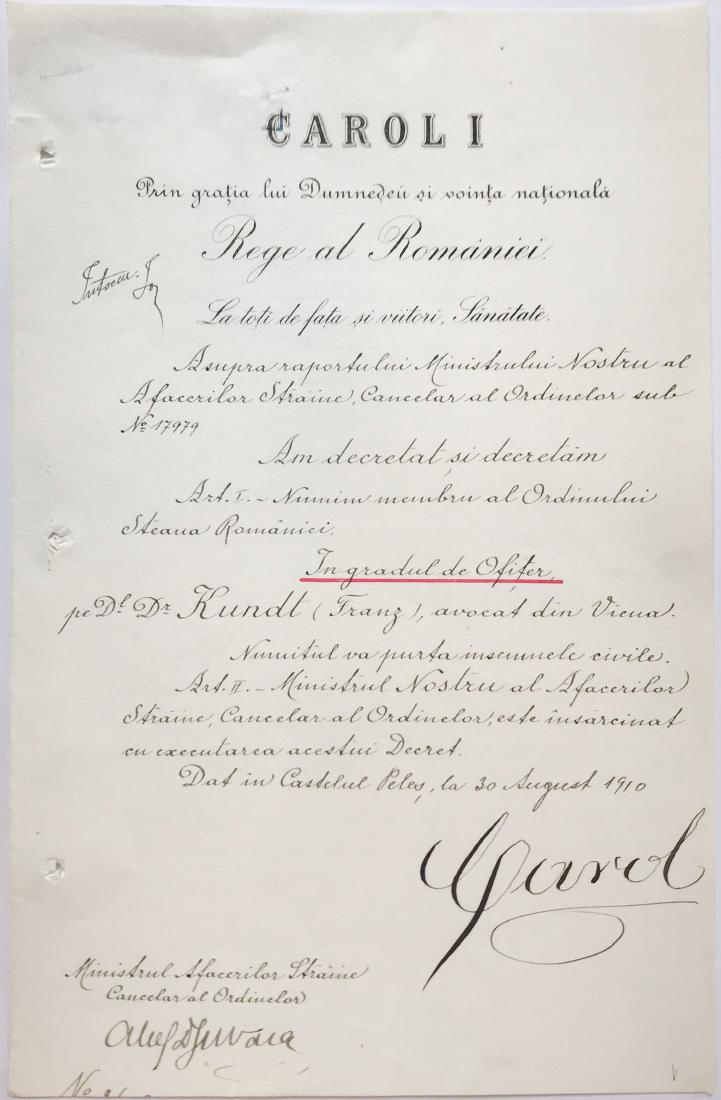 CAROL I
Prin grația lui Dumnedeŭ și voința națională
Rege al României.
La toți de față și viitori, Sănătate.
Asupra raportului Ministrului Nostru al
Afacerilor Străine, Cancelar al Ordinelor sub
No 17979
Am decretat și decretăm
Art. I. - Numim membru al Ordinului
Steaua României.
In gradul de Ofițer,
pe Dl Dr Kundt (Franz), avocat din Viena.
Numitul va purta insemnele civile.
Art. II. - Ministrul Nostru al Afacerilor
Străine, Cancelar al Ordinelor, este însărcinat
cu executarea acestui Decret.
Dat în Castelul Peleș, la 30 August 1910
Carol
Ministrul Afacerilor Străine
Cancelar al Ordinelor